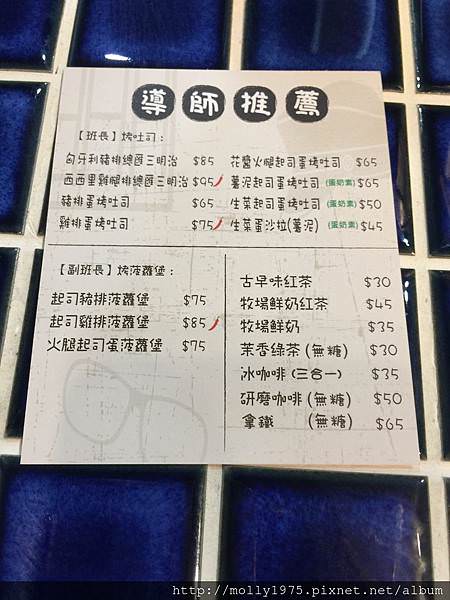 導師推薦
【班長】烤吐司：
匈牙利豬排總匯三明治 $85
西西里雞腿排總匯三明治 $95
豬排蛋烤吐司 $65
雞排蛋烤吐司 $75
花醬火腿起司蛋烤吐司 $65
薯泥起司蛋烤吐司 (蛋奶素) $65
生菜起司蛋烤吐司 (蛋奶素) $50
生菜蛋沙拉(薯泥) (蛋奶素) $45
【副班長】烤菠蘿堡：
起司豬排菠蘿堡 $75
起司雞排菠蘿堡 $85
火腿起司蛋菠蘿堡 $75
古早味紅茶 $30
牧場鮮奶紅茶 $45
牧場鮮奶 $35
茉香綠茶 (無糖) $30
冰咖啡 (三合一) $35
研磨咖啡 (無糖) $50
拿鐵 (無糖) $65
http://molly1975.pixnet.net/album